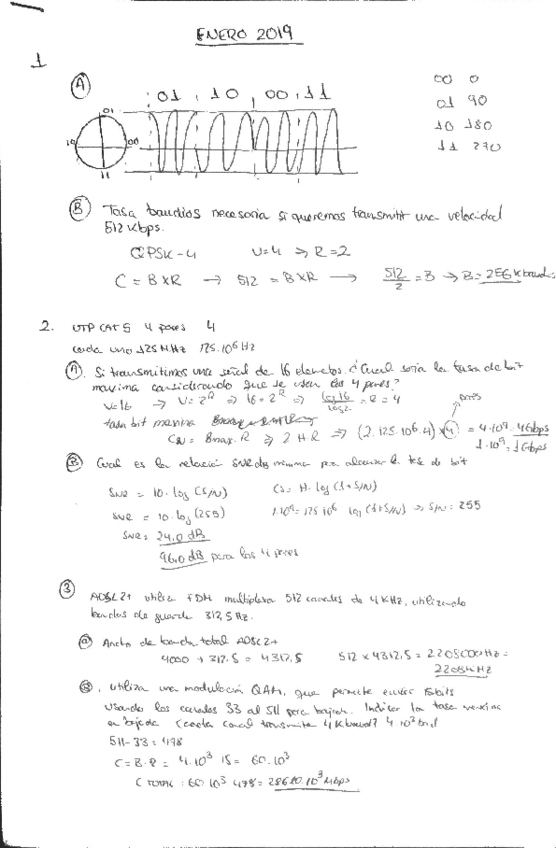 ENERO 2019
1
A
01 10 00 11
00 0
01 90
10 180
11 270
01
10 00
11
B Tasa baudios necesaria si queremos transmitir una velocidad
512 kbps.
QPSK-4 V=4 ⇒ R=2
C = B×R → 512 = B×R → 512/2 = B → B = 256 kbaudios
2. UTP CAT 5 4 pares 4
cada uno 125 MHz 125.10⁶ Hz
A. Si transmitimos una señal de 16 elementos. ¿Cual seria la tasa de bit
maxima considerando que se usan los 4 pares?
V=16 → V=2ᴿ ⇒ 16=2ᴿ ⇒ log16/log2 = R = 4
pares
tasa bit maxima
= Bmax.R ⇒ 2.H.R ⇒ (2.125.10⁶.4) × 4 = 4.10⁹ = 4Gbps
1.10⁹ = 1Gbps
B Cual es la relación minima para alcanzar la tasa de bit
SNR = 10.log(S/N) C = H.log(1+S/N)
SNR = 10.log(255) 1.10⁹ = 125.10⁶ log(1+S/N) ⇒ S/N = 255
SNR = 24.0 dB
96.0 dB para los 4 pares
3 ADSL2+ utiliza FDM multiplexa 512 canales de 4KHz, utilizando
bandas de guarda 312,5 Hz.
a Ancho de banda total ADSL2+
4000 + 312.5 = 4312.5 512 × 4312.5 = 2208000 Hz =
2208 kHz
B. Utiliza una modulación QAM, que permite enviar 15 bits
usando los canales 33 al 511 para bajada. Indicar la tasa maxima
en bajada (cada canal transmite 4 Kbaud) 4.10³
511-33 = 478
C = B.R = 4.10³ 15 = 60.10³
C TOTAL = 60.10³ 478 = 28680.10³ Mbps